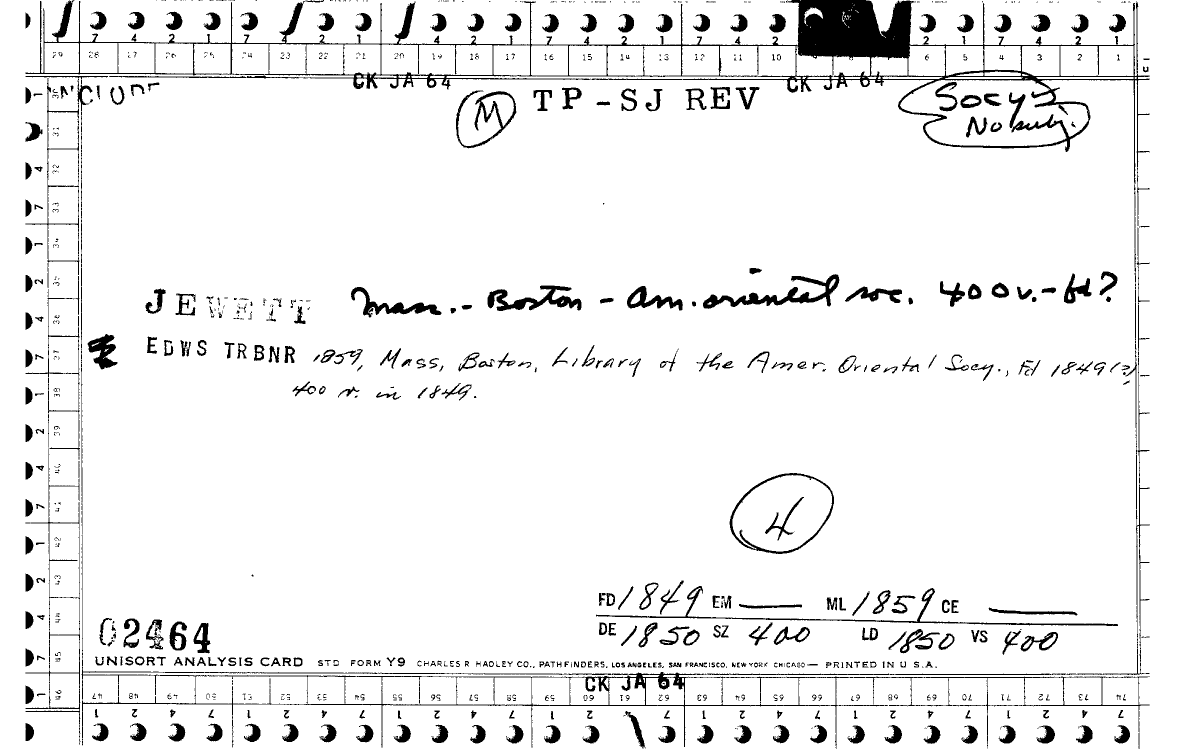 7 4 2 1 7 4 2 1 7 4 2 1 7 4 2 1 7 4 2 2 1 7 4 2 1
29 28 27 26 25 24 23 22 21 20 19 18 17 16 15 14 13 12 11 10 7 6 5 4 3 2 1
CK JA 64 CK JA 64
INCLUDE
M TP-SJ REV
Socys
No subj.
JEWETT Mass. - Boston - Am. oriental soc. 400v. - fd?
EDWS TRBNR 1859, Mass, Boston, Library of the Amer. Oriental Socy., Fd 1849(?),
400 v. in 1849.
4
FD 1849 EM ML 1859 CE
DE 1850 SZ 400 LD 1850 VS 400
02464
UNISORT ANALYSIS CARD STD FORM Y9 CHARLES R HADLEY CO., PATHFINDERS, LOS ANGELES, SAN FRANCISCO, NEW YORK CHICAGO — PRINTED IN U S.A.
CK JA 64
47 48 49 50 51 52 53 54 55 56 57 58 59 60 61 62 63 64 65 66 67 68 69 70 71 72 73 74
1 2 4 7 1 2 4 7 1 2 4 7 1 2 7 1 2 4 7 1 2 4 7 1 2 4 7